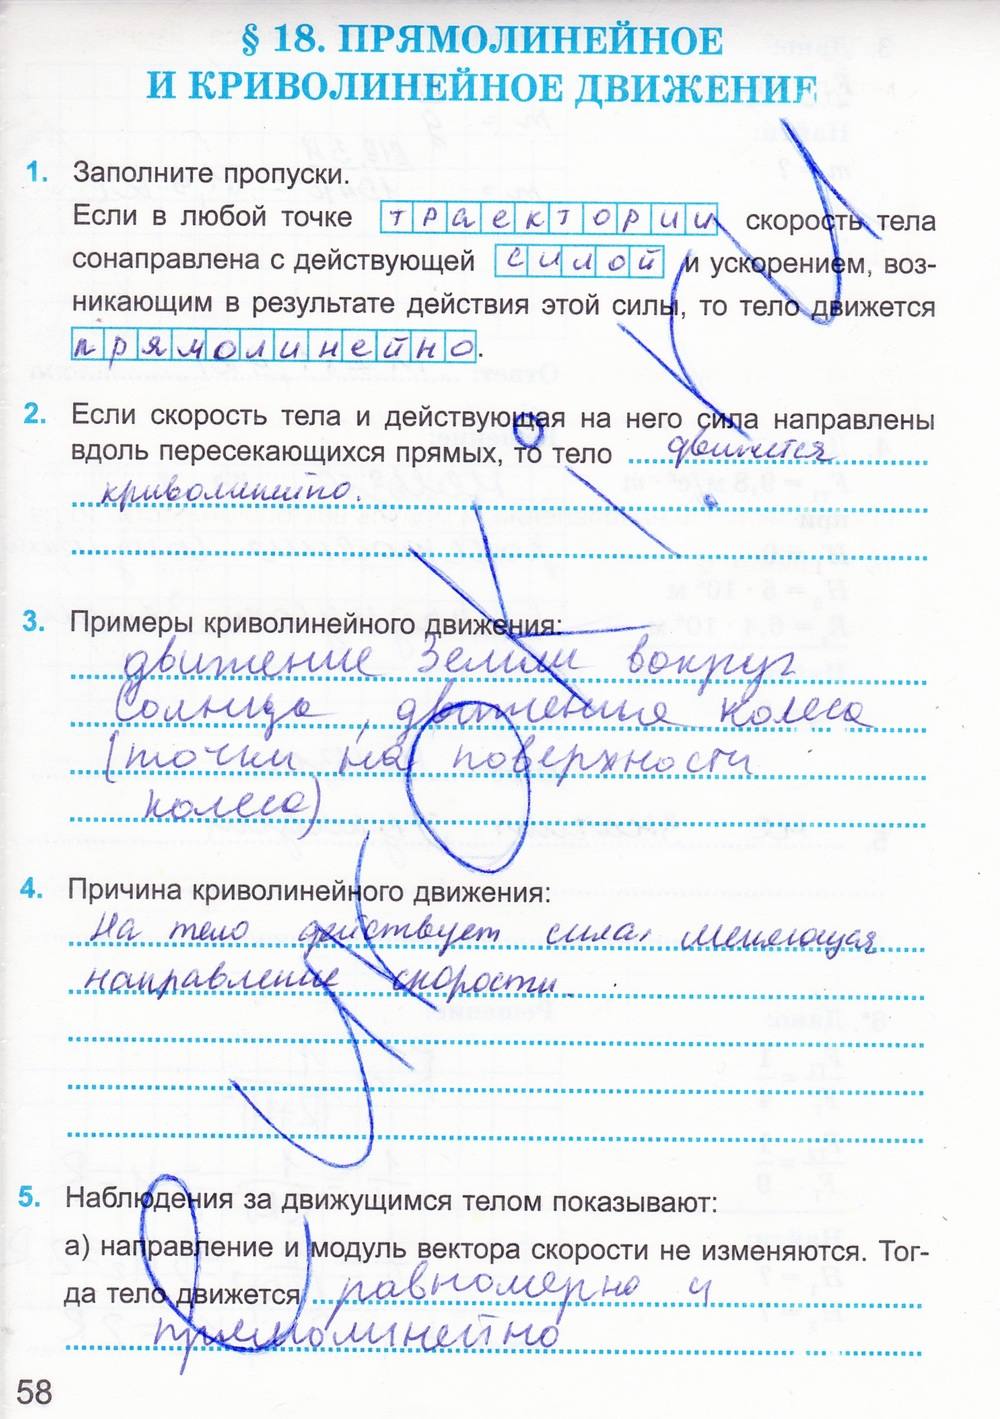 § 18. ПРЯМОЛИНЕЙНОЕ
И КРИВОЛИНЕЙНОЕ ДВИЖЕНИЕ
1. Заполните пропуски.
Если в любой точке траектории скорость тела
сонаправлена с действующей силой и ускорением, воз-
никающим в результате действия этой силы, то тело движется
прямолинейно.
2. Если скорость тела и действующая на него сила направлены
вдоль пересекающихся прямых, то тело движется
криволинейно.
3. Примеры криволинейного движения:
движение Земли вокруг
Солнца, движения колеса
(точки на поверхности
колеса)
4. Причина криволинейного движения:
На тело действует сила, меняющая
направление скорости.
5. Наблюдения за движущимся телом показывают:
а) направление и модуль вектора скорости не изменяются. Тог-
да тело движется равномерно и
прямолинейно
58